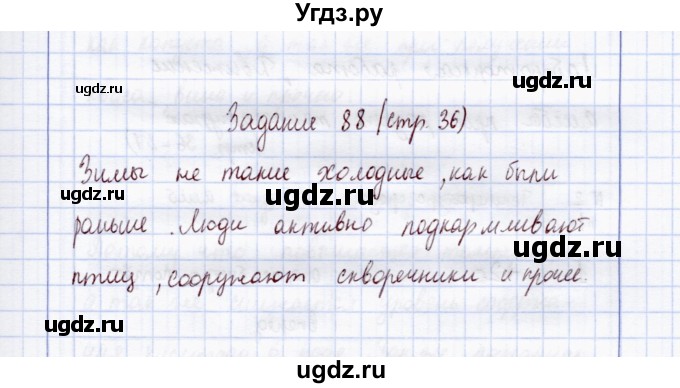 Угдз.ру
Задание 88 (стр. 36)
ugdz.ru
ugdz.ru
Зимы не такие холодные, как были
ugdz.ru
ugdz.ru
раньше. Люди активно подкармливают
ugdz.ru
ugdz.ru
птиц, сооружают скворечники и прочее.
ugdz.ru
ugdz.ru
ugdz.ru